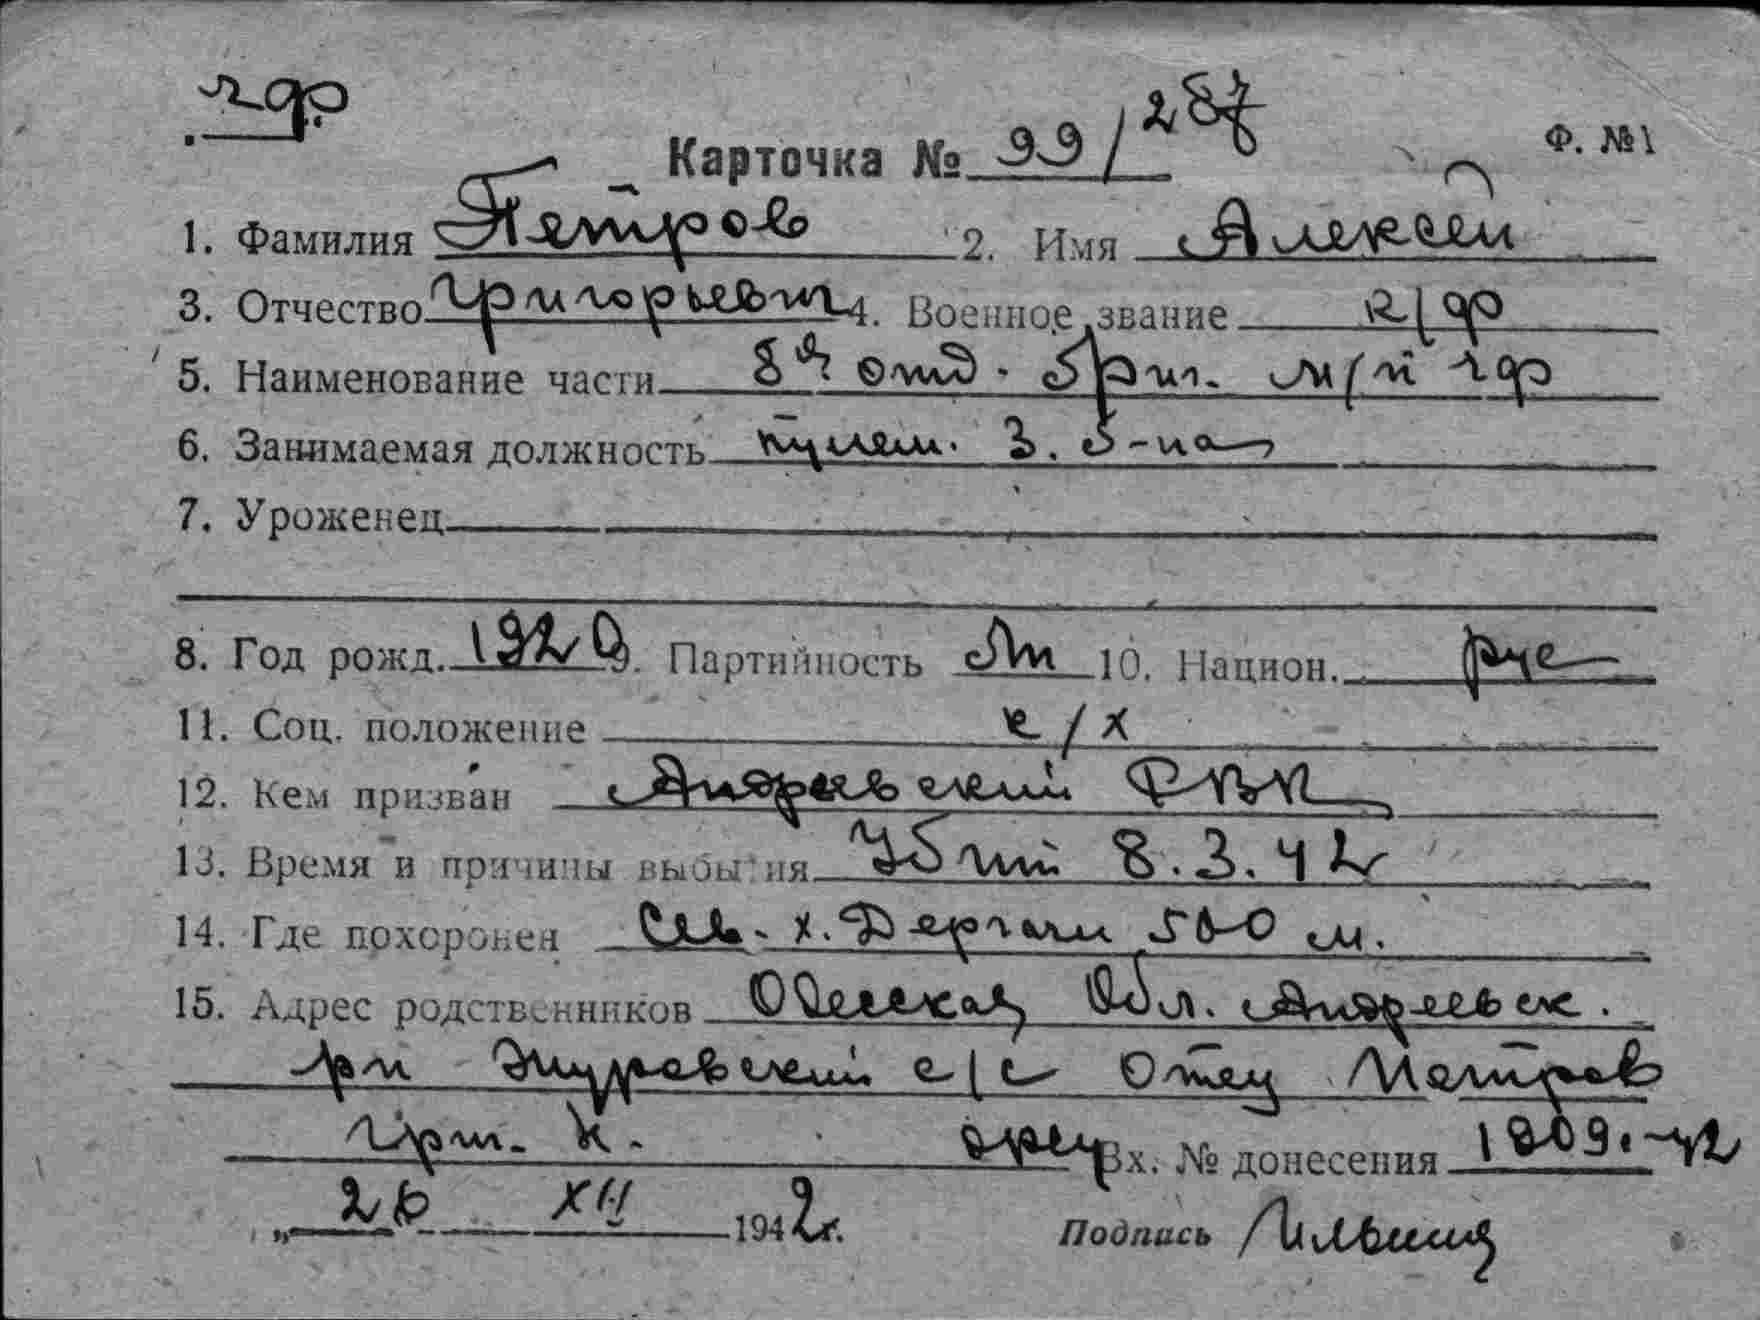 гф
Карточка № 99/287 Ф. №1
1. Фамилия Петров 2. Имя Алексей
3. Отчество Григорьевич 4. Военное звание к/ф
5. Наименование части 8й отд. бриг. м/п гф
6. Занимаемая должность пулем. 3. б-на
7. Уроженец
8. Год рожд. 1920 9. Партийность 10. Национ. рус
11. Соц. положение с/х
12. Кем призван Андреевский РВК
13. Время и причины выбытия Убит 8.3.42
14. Где похоронен Сев. х. Дергачи 500 м.
15. Адрес родственников Одесская обл. Андреевск.
рн с/с Отец Петров
Григ. К. Вх. № донесения 1809.-42
„26 XII 1942г. Подпись